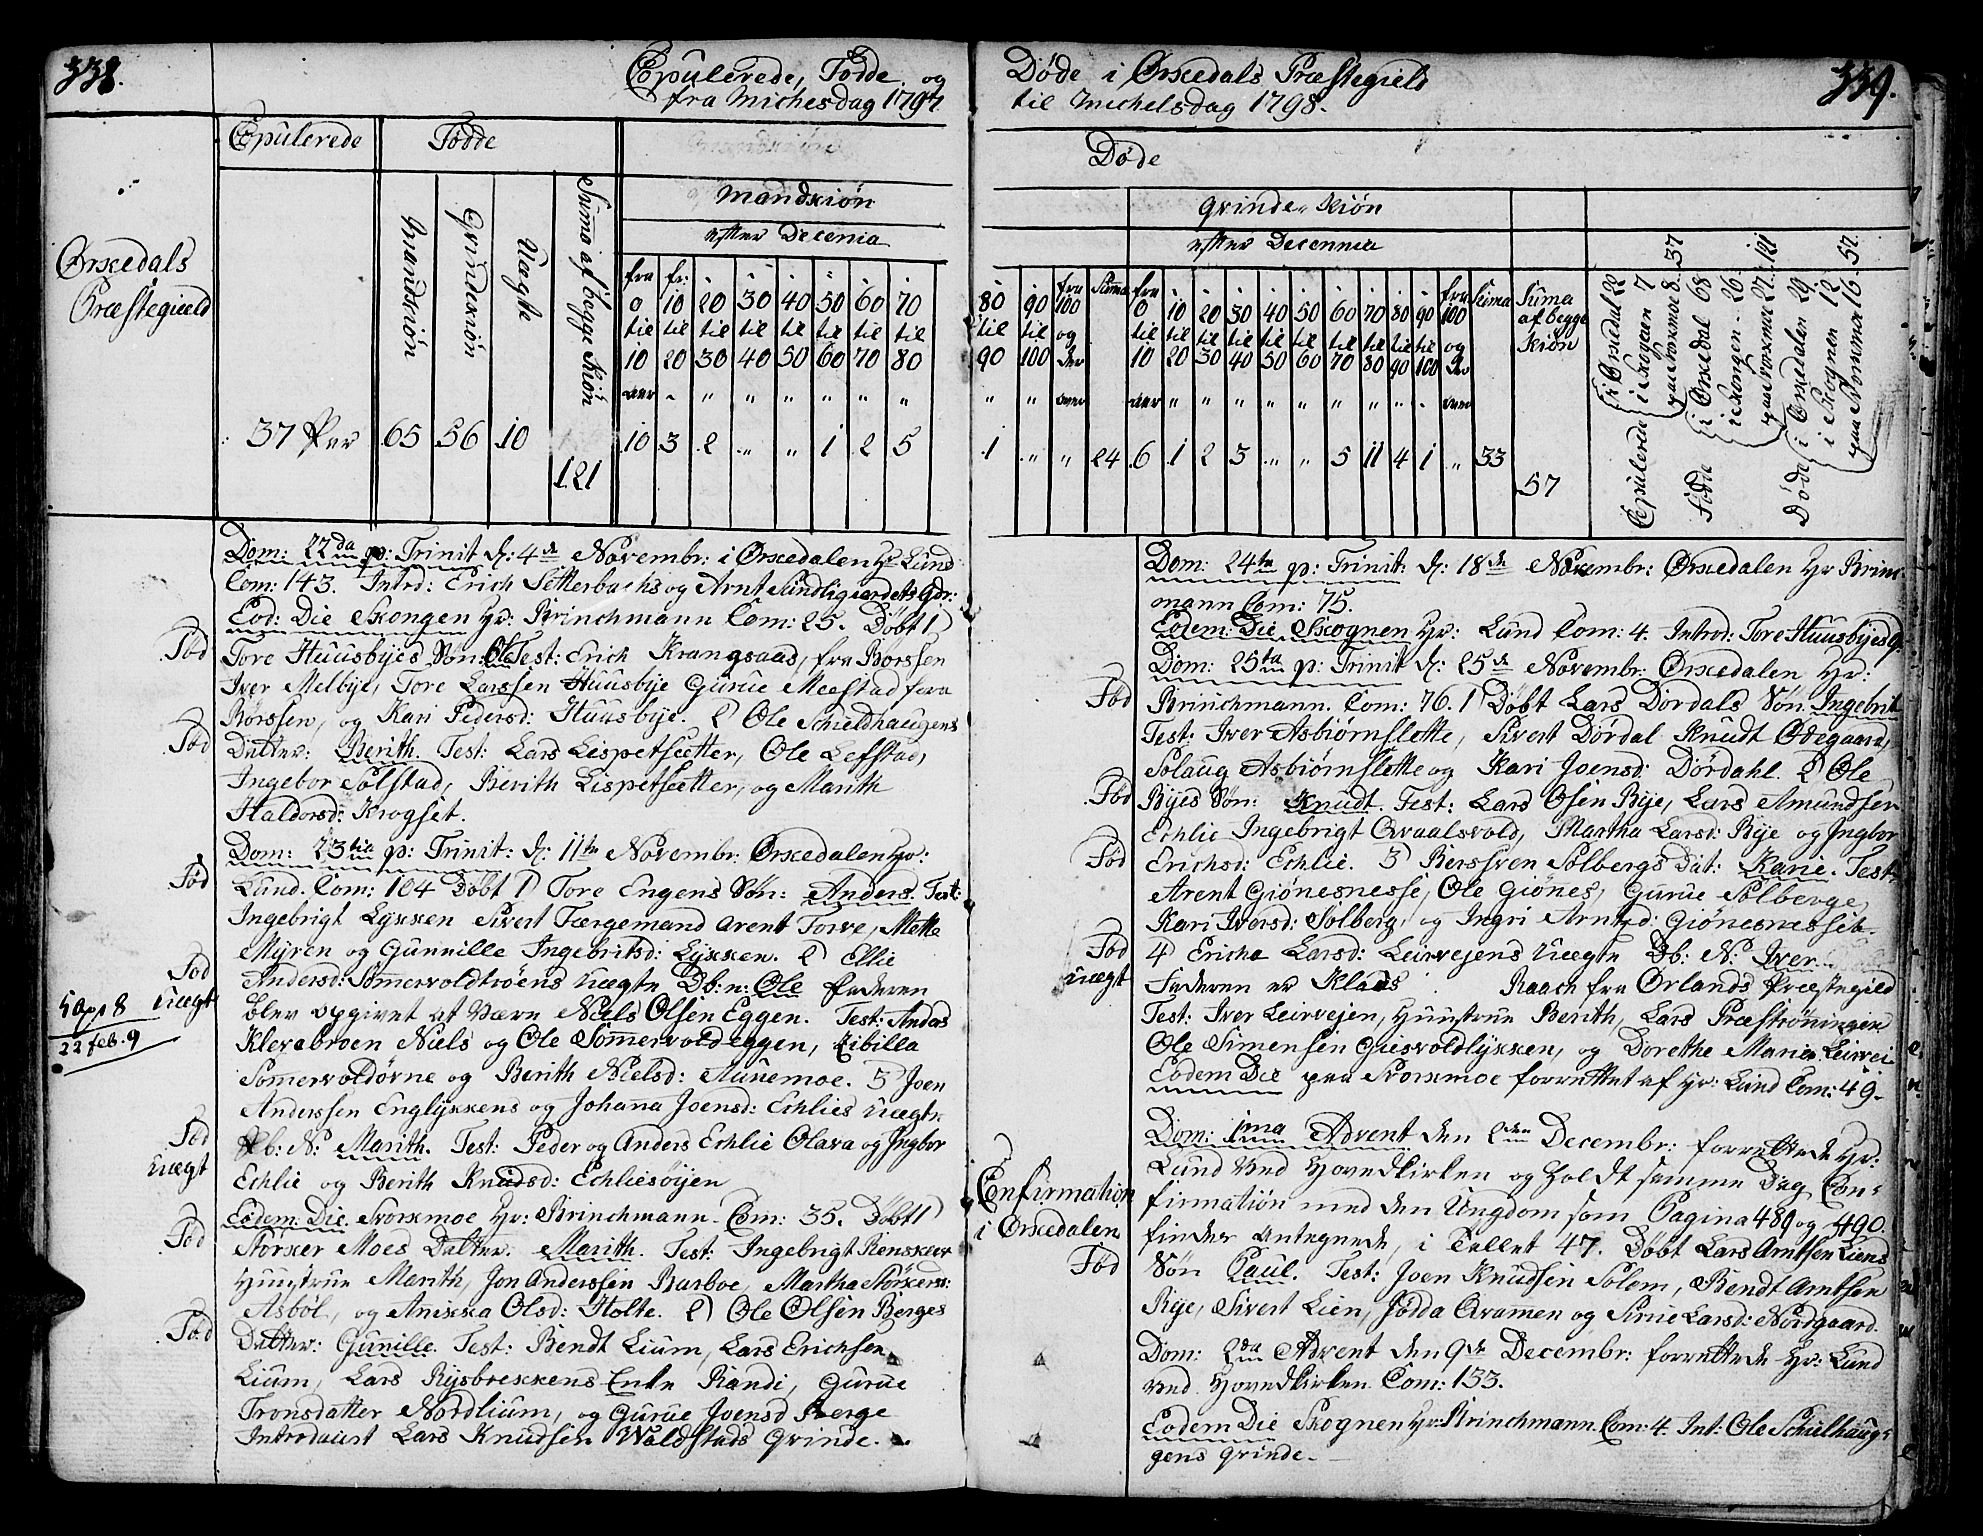 338.
Copulerede, Fødde og
fra Michesdag 1797
Copulerede
Fødde
Mandkiøn
efter Decenia
Ørkedals
Præstegield
Mandkiøn
Qvindekiøn
Uægte
Suma af begge Kiøn
fra fr:
0 10 20 30 40 50 60 70
til til til til til til til til
10 20 30 40 50 60 70 80
aar " " " " " " "
37 Par 65 56 10 121
10 3 2 " " 1 2 5
Dom: 22da p: Trinit d: 4de Novembr: i Ørkedalen Hr Lund
Com: 143. Introd: Erich Sætterbachs og Arnt Sundligaerdets Qdr:
Eod: Die Skongen Hr: Brinchmann Com: 25. Døbt 1)
Fød
Tore Huusbyes Søn Ole Test: Erich Krangsaas, fra Børssen
Iver Melbye, Tore Larssen Huusbye Gurue Meestad fara
Børssen, og Kari Pedersd: Huusbye. 2) Ole Schieldhaugens
Fød
Datter: Berith. Test: Lars Lispetsætter, Ole Lefstad,
Ingebor Solstad, Berith Lispetsætter, og Marith
Haldorsd: Krogset.
Dom: 23tia p: Trinit: d: 11te Novembr: Ørkedalen Hr:
Fød
Lund. Com: 104 Døbt 1) Tore Engens Søn: Anders. Test:
Ingebrigt Lykken Sivert Færgemand Arent Torve, Mette
Myren og Gunnille Ingebritsd: Lykken. 2) Ellie
Fød
Uægt
Andersd: Sommervoldtrøens Uægte Db: n: Ole Faderen
blev opgivet at være Niels Olsen Eggen. Test: Anders
5 Apr 8
22 feb. 9
Klevabroen Niels og Ole Sommervold eggen, Zibilla
Sommervoldørne og Berith Nielsd: Aunemoe. 3 Joen
Anderssen Englykkens og Johanna Joensd: Echlies Uægte
Fød
Uægt
Db: N: Marith. Test: Peder og Anders Echlie Olava og Ingbor
Echlie og Berith Knudsd: Echliesøyen
Eodem: Die. Svorkmoe Hr: Brinchmann. Com: 35. Døbt 1)
Fød
Størker Moes Datter. Marith. Test: Ingebrigt Rensklev
Huustrue Marith, Jon Anderssen Barboe, Martha Størkers:
Asbøl, og Anikka Olsd: Holte. 2) Ole Olsen Berges
Fød
Datter: Gunille. Test: Bendt Lium, Lars Erichsen
Lium, Lars Rysbrekkens Enke Randi, Gurue
Tronsdatter Nordlium, og Gurue Joensd Berge
Introduist Lars Knudsen Woldstads Qvinde.
339.
Døde i Ørkedals Præstegield
til Michelsdag 1798.
Døde
Qvinde-Kiøn
efter Decennia
80 90 fra 100 Suma fra 0 10 20 30 40 50 60 70 80 90 fra 100 Suma
til til og til til til til til til til til til til og
90 100 der 10 20 30 40 50 60 70 80 90 100 der
" " over aar " " " " " " " " " over
Suma
af begge
Kiøn
1 " " 24 6 1 2 3 " " 5 11 4 1 " 33
57
Copulerede i Ørkedal 22
i Skogen 7
paa Svorkmoe 8. 37
Fødde i Ørkedal 68
i Skongen 26.
paa Svorkmoe 27. 121
Døde i Ørkedalen 29
i Skognen 12
paa Svorkmoe 16. 57.
Dom: 24ta p: Trinit: d: 18de Novembr: Ørkedalen Hr Brinc-
mann Com: 75.
Eodem: Die Skognen Hr: Lund Com: 4. Introd: Tore Huusbyes Q.
Dom: 25ta p: Trinit d: 25de Novembr: Ørkedalen Hr:
Fød
Brinchmann. Com: 76. 1) Døbt Lars Dørdals Søn. Ingebrit
Test: Iver Asbiørnslette, Sivert Dørdal Knudt Ødegaard,
Solaug Asbiørnslette og Kari Joensd: Dørdahl. 2) Ole
Fød
Byes Søn: Knudt. Test: Lars Olsen Bye, Lars Amundsen
Echlie Ingebrigt Qvaalsvold, Martha Larsd: Bye og Ingbor
Fød
Erichsd: Echlie. 3) Berssven Solbergs Dat: Karie. Test:
Arent Giønesnesse, Ole Giønes, Gurue Solberge,
Kari Iversd: Solberg, og Ingri Arntsd: Giønesnesset.
Fød
Uægt
4) Ericha Larsd: Leirvejens Uægte Db: N: Iver.
Faderen er Klaus Raach fra Ørlands Præstegield
Test: Iver Leirvejen, Huustrue Berith, Lars Præstrøningen
Ole Simensen Griisvoldlykken, og Dorethe Maria Leirvei
Eodem Die paa Svorkmoe forrettet af Hr: Lund Com: 49.
Dom: 1ma Advent den 2den Decembr: forrettede Hr:
Lund ved Hovedkirken og holdt samme Dag Con-
Confirmation
i Ørkedalen
firmation med den Ungdom som Pagina 489 og 490
findes antegnede, i Tallet 47. Døbt Lars Arntsen Liens
Fød
Søn Paul. Test: Joen Knudsen Solem, Bendt Arntsen
Rye, Sivert Lien, Jødda Qvamen og Sirue Larsd: Nordgaard.
Dom: 2da Advent den 9de Decembr: forrettede Hr: Lund
ved Hovedkirken Com: 153.
Eodem Die Skognen Hr: Brinchmann. Com: 4. Int: Ole Schielhaug-
gens Qvinde.